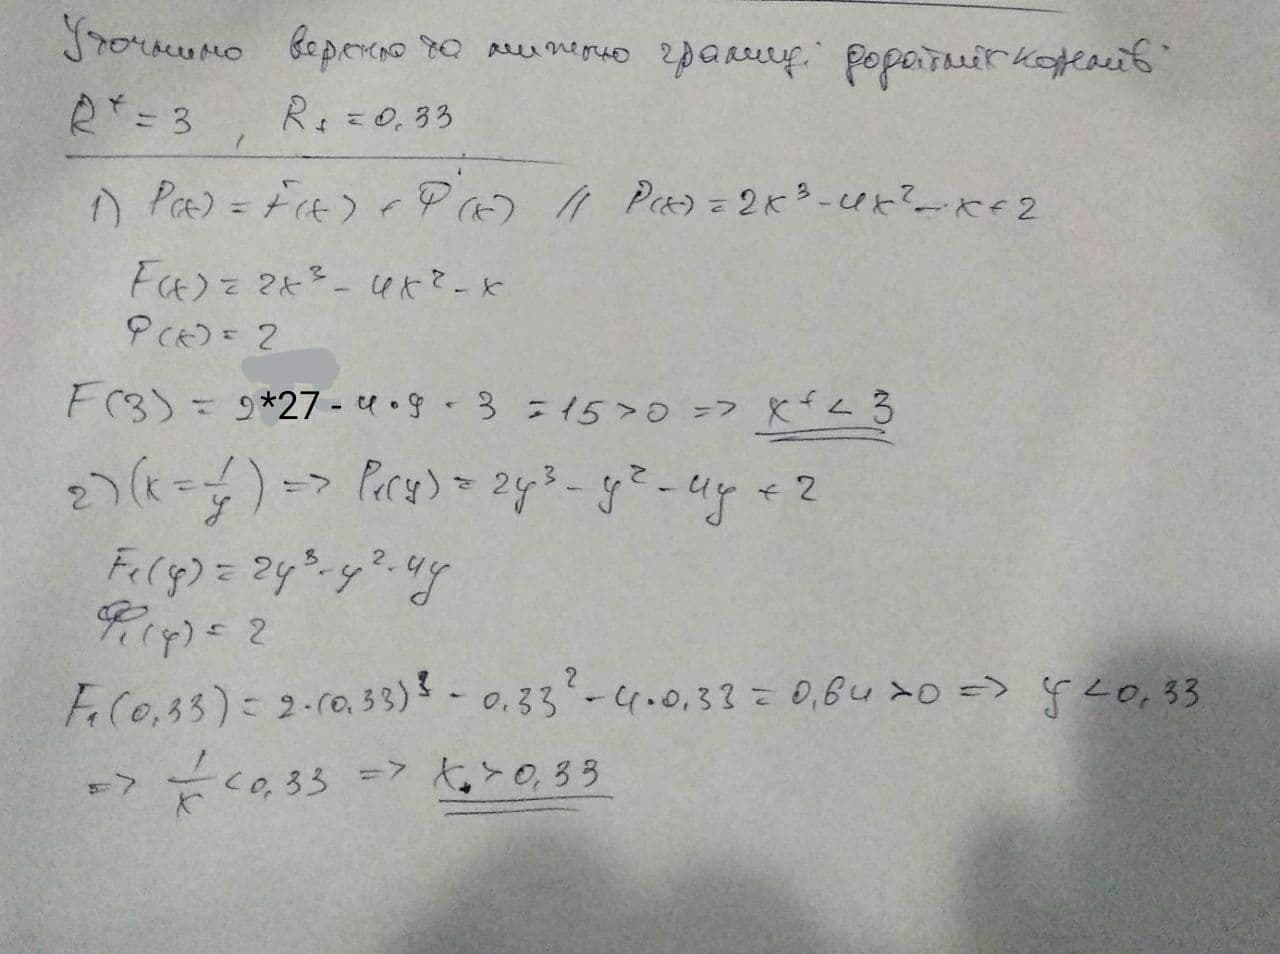 Уточнимо верхню та нижню границі додатніх коренів:
R⁺ = 3 , R₊ = 0,33
1) P(x) = F(x) + Φ(x) // P(x) = 2x³ - 4x² - x + 2
F(x) = 2x³ - 4x² - x
Φ(x) = 2
F(3) = 2*27 - 4·9 - 3 = 15 > 0 => x⁺ < 3
2) (x = 1/y) => P₁(y) = 2y³ - y² - 4y + 2
F₁(y) = 2y³ - y² - 4y
Φ₁(y) = 2
F₁(0,33) = 2·(0,33)³ - 0,33² - 4·0,33 = 0,64 > 0 => y < 0,33
=> 1/x < 0,33 => x₊ > 0,33